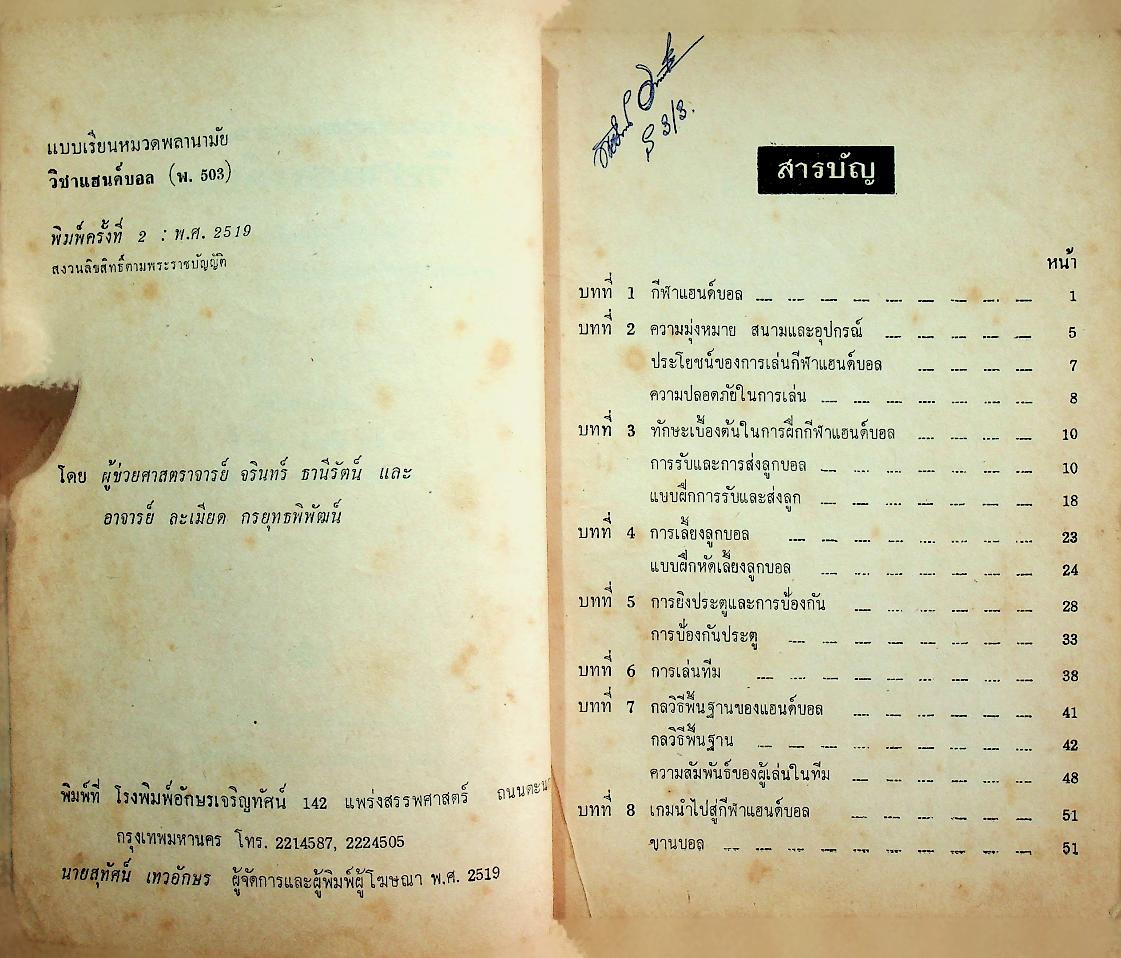 แบบเรียนหมวดพลานามัย
วิชาแฮนด์บอล (พ. 503)
พิมพ์ครั้งที่ 2 : พ.ศ. 2519
สงวนลิขสิทธิ์ตามพระราชบัญญัติ
โดย ผู้ช่วยศาสตราจารย์ จรินทร์ ธานีรัตน์ และ
อาจารย์ ละเมียด กรยุทธพิพัฒน์
พิมพ์ที่ โรงพิมพ์อักษรเจริญทัศน์ 142 แพร่งสรรพศาสตร์ ถนนตะนา
กรุงเทพมหานคร โทร. 2214587, 2224505
นายสุทัศน์ เทวอักษร ผู้จัดการและผู้พิมพ์ผู้โฆษณา พ.ศ. 2519
3/3.
สารบัญ
หน้า
บทที่ 1 กีฬาแฮนด์บอล 1
บทที่ 2 ความมุ่งหมาย สนามและอุปกรณ์ 5
ประโยชน์ของการเล่นกีฬาแฮนด์บอล 7
ความปลอดภัยในการเล่น 8
บทที่ 3 ทักษะเบื้องต้นในการฝึกกีฬาแฮนด์บอล 10
การรับและการส่งลูกบอล 10
แบบฝึกการรับและส่งลูก 18
บทที่ 4 การเลี้ยงลูกบอล 23
แบบฝึกหัดเลี้ยงลูกบอล 24
บทที่ 5 การยิงประตูและการป้องกัน 28
การป้องกันประตู 33
บทที่ 6 การเล่นทีม 38
บทที่ 7 กลวิธีพื้นฐานของแฮนด์บอล 41
กลวิธีพื้นฐาน 42
ความสัมพันธ์ของผู้เล่นในทีม 48
บทที่ 8 เกมนำไปสู่กีฬาแฮนด์บอล 51
ขานบอล 51